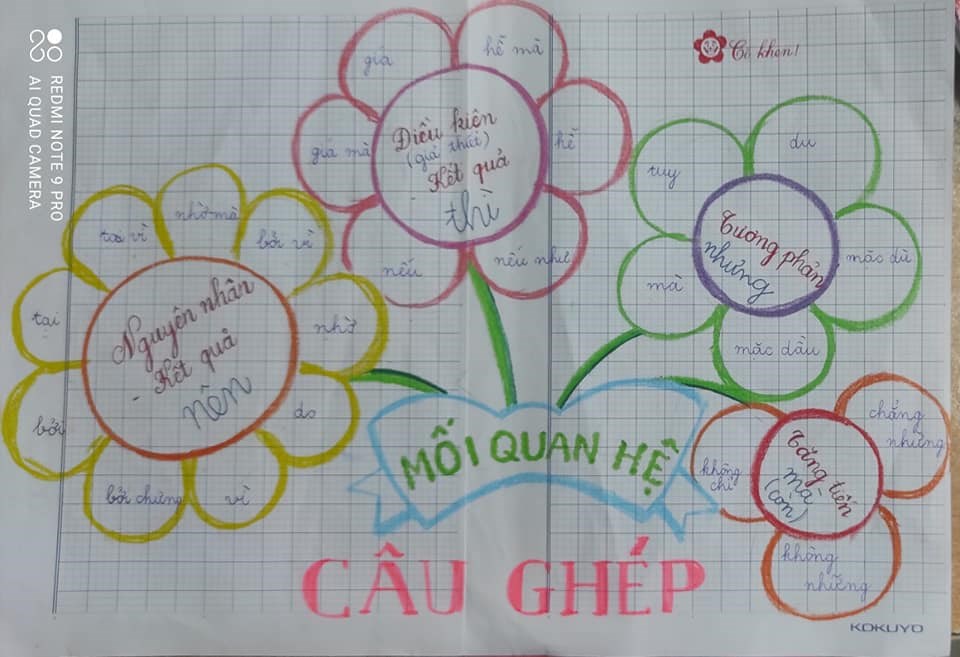 REDMI NOTE 9 PRO
AI QUAD CAMERA
Cô khen!
giá
hễ mà
giá mà
Điều kiện
(giả thiết)
- Kết quả
thì
hễ
nếu
nếu như
tại vì
nhờ mà
bởi vì
tại
Nguyên nhân
- Kết quả
nên
nhờ
bởi
do
bởi chưng
vì
tuy
dù
mà
Tương phản
nhưng
mặc dù
mặc dầu
không
chỉ
Tăng tiến
mà
(còn)
chẳng
những
không
những
MỐI QUAN HỆ
CÂU GHÉP
KOKUYO